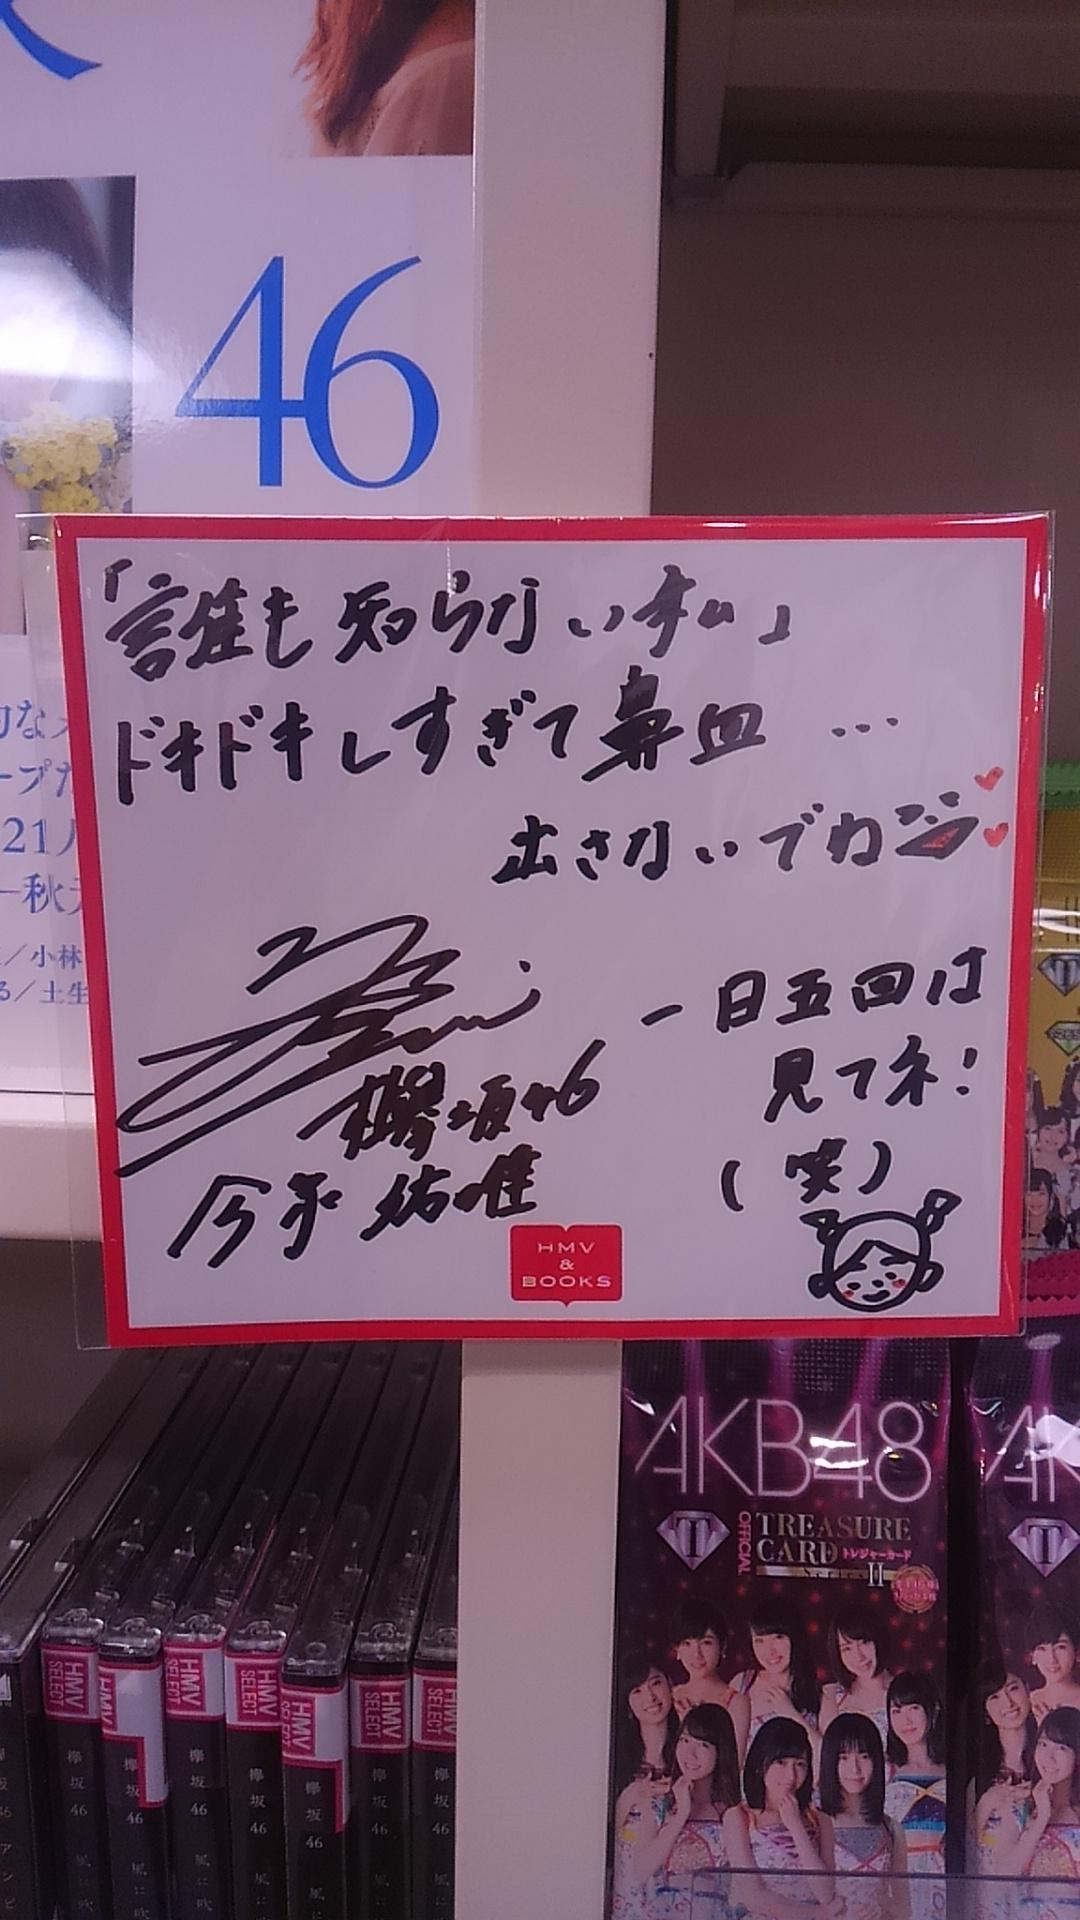 46
「誰も知らない私」
ドキドキしすぎて鼻血…
出さないでね
一日五回は
見てネ!
(笑)
欅坂46
今泉佑唯
HMV
&
BOOKS
21人
秋元
/小林
る/土生
AKB48
OFFICIAL
TREASURE
CARD トレジャーカード
II
HMV
SELECT
欅坂46 風に吹
HMV
欅坂46 風に吹
HMV
SELECT
欅坂46 風に吹
HMV
SELECT
欅坂46 風に
HMV
SELECT
欅坂46 風に
HMV
SELECT
欅坂46 風に
HMV
SELECT
欅坂46 風に